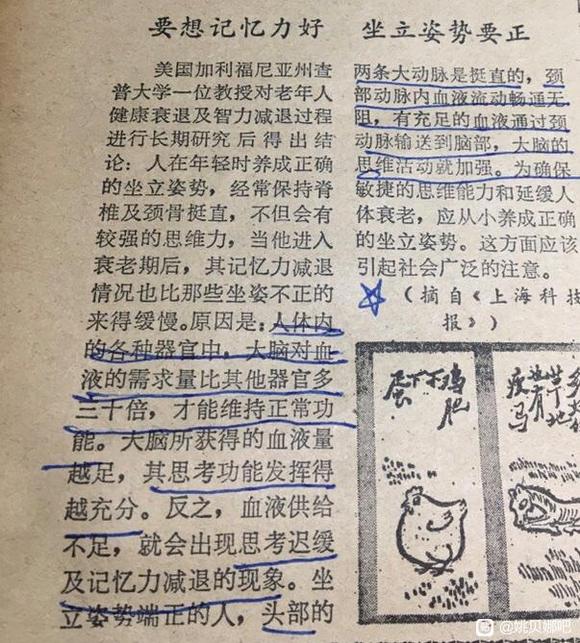 要想记忆力好 坐立姿势要正
美国加利福尼亚州查
普大学一位教授对老年人
健康衰退及智力减退过程
进行长期研究后得出结
论：人在年轻时养成正确
的坐立姿势，经常保持脊
椎及颈骨挺直，不但会有
较强的思维力，当他进入
衰老期后，其记忆力减退
情况也比那些坐姿不正的
来得缓慢。原因是：人体内
的各种器官中，大脑对血
液的需求量比其他器官多
三十倍，才能维持正常功
能。大脑所获得的血液量
越足，其思考功能发挥得
越充分。反之，血液供给
不足，就会出现思考迟缓
及记忆力减退的现象。坐
立姿势端正的人，头部的
两条大动脉是挺直的，颈
部动脉内血液流动畅通无
阻，有充足的血液通过颈
动脉输送到脑部，大脑的
思维活动就加强。为确保
敏捷的思维能力和延缓人
体衰老，应从小养成正确
的坐立姿势。这方面应该
引起社会广泛的注意。
（摘自《上海科技
报》）
鸡肥
不下
蛋
@姚贝娜吧